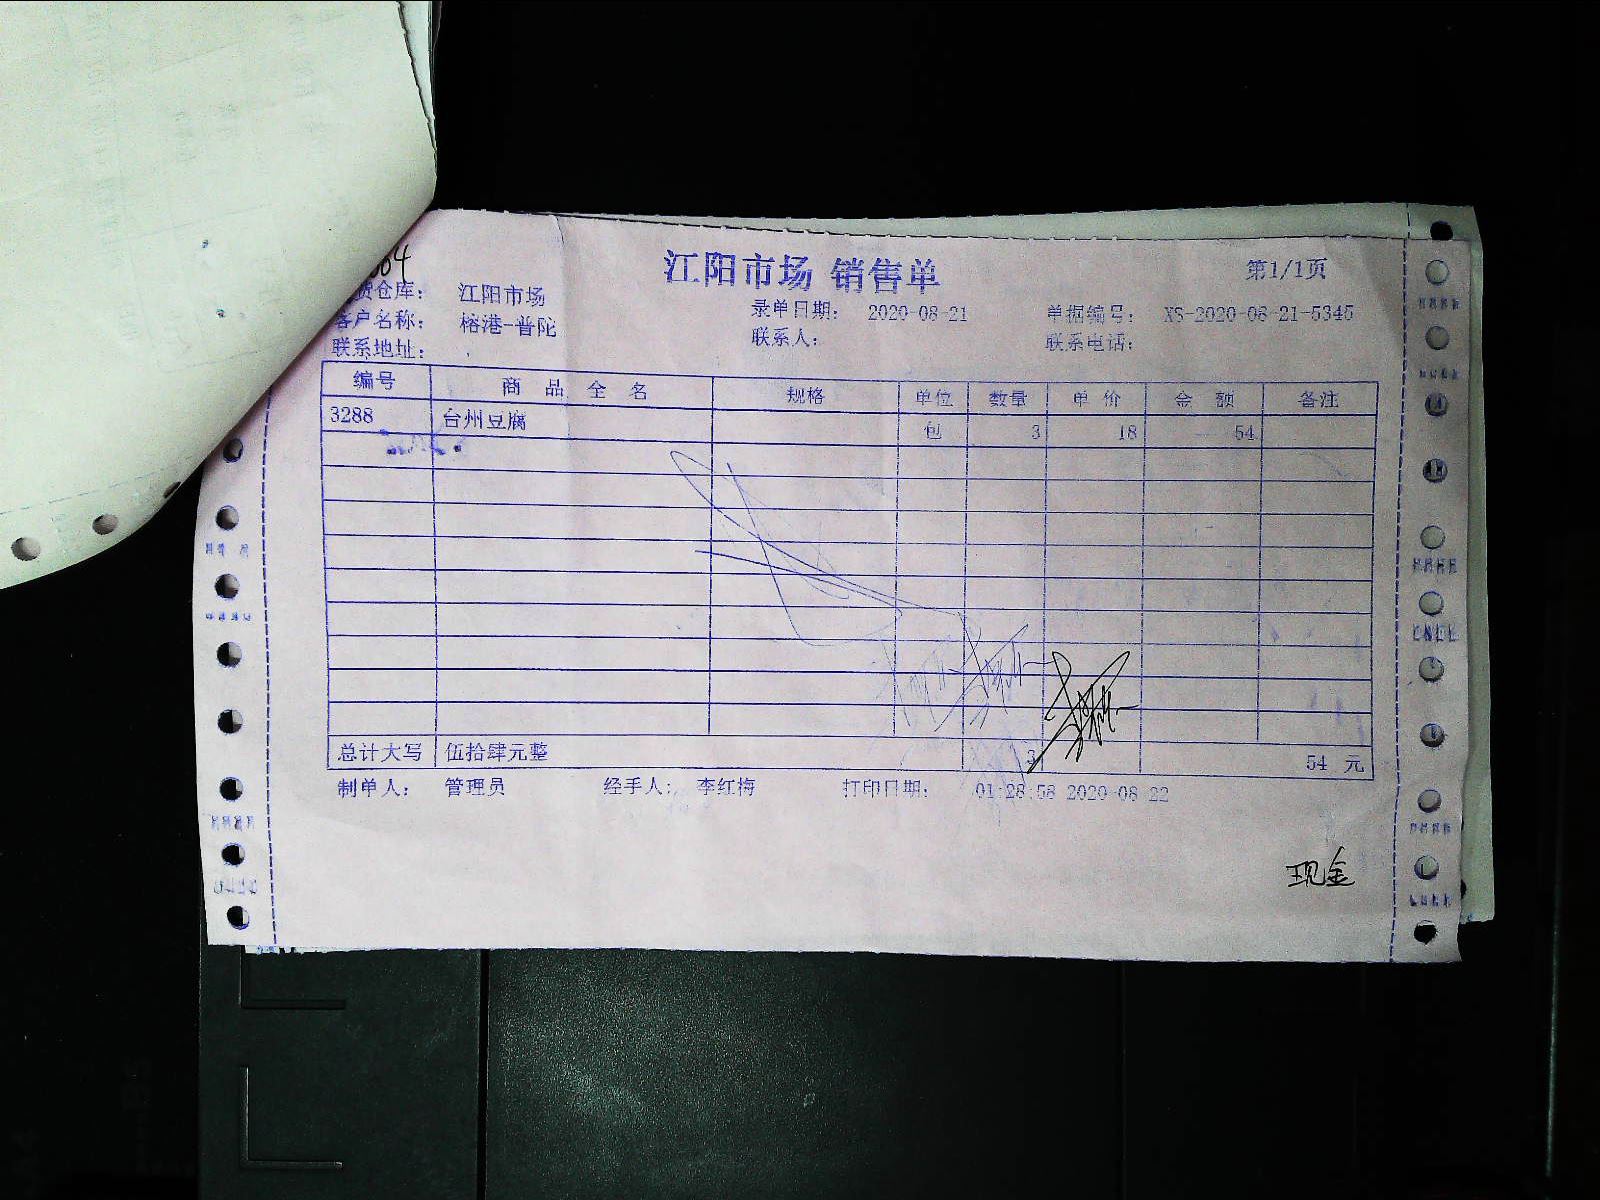 江阳市场 销售单
第1/1页
04
货仓库： 江阳市场
录单日期： 2020-08-21
单据编号： XS-2020-08-21-5345
客户名称： 榕港-普陀
联系人：
联系电话：
联系地址：
编号 商 品 全 名 规格 单位 数量 单 价 金 额 备注
3288 台州豆腐 包 3 18 54
总计大写 伍拾肆元整 3 54 元
制单人： 管理员 经手人： 李红梅 打印日期： 01:28:58 2020-08-22
现金